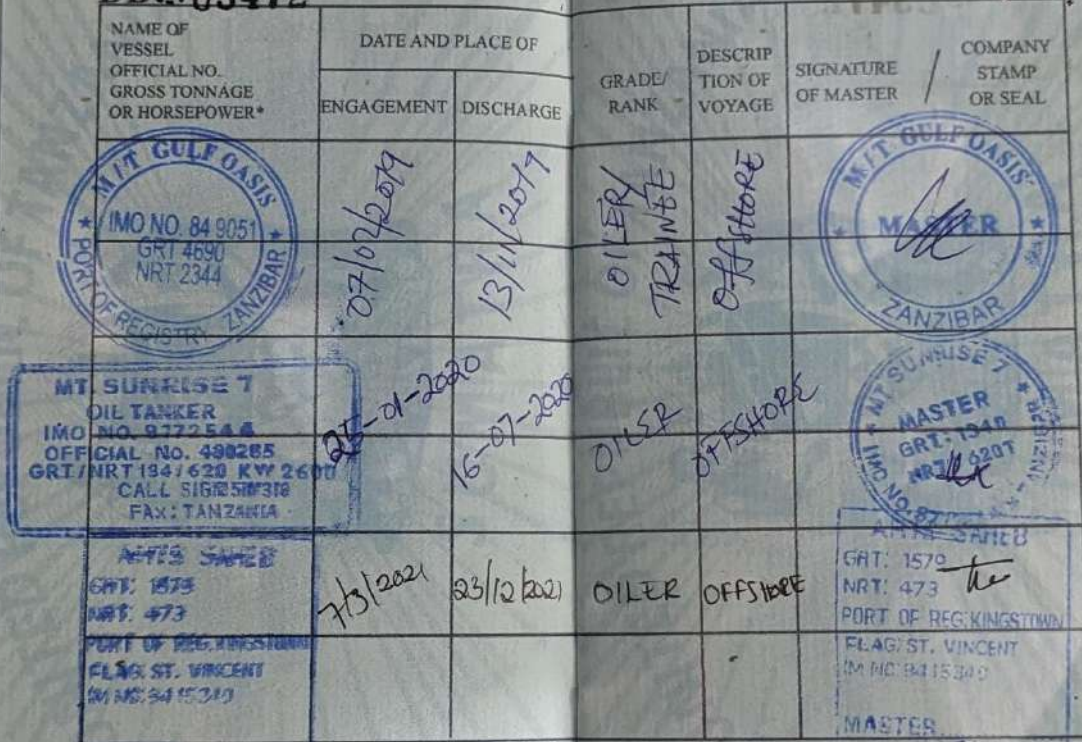 NAME OF
VESSEL
OFFICIAL NO.
GROSS TONNAGE
OR HORSEPOWER*
DATE AND PLACE OF
ENGAGEMENT
DISCHARGE
GRADE/
RANK
DESCRIP
TION OF
VOYAGE
SIGNATURE
OF MASTER
/
COMPANY
STAMP
OR SEAL
M/T GULF OASIS
IMO NO. 84 9051
GRT 4690
NRT 2344
PORT OF REGISTRY ZANZIBAR
07/02/2019
13/11/2019
OILER/
TRAINEE
OffSHORE
M/T GULF OASIS
MASTER
ZANZIBAR
MT SUNRISE 7
OIL TANKER
IMO NO.
OFFICIAL No.
GRT/NRT 194/620 KW
CALL SIGN
FAX: TANZANIA
-01-2020
16-07-2020
OILER
OFFSHORE
MT SUNRISE 7
MASTER
GRT:
620T
IMO NO.
SAHEB
GRT:
NRT: 473
PORT OF REG. KINGSTOWN
FLAG: ST. VINCENT
7/3/2021
23/12/2021
OILER
OFFSHORE
SAHEB
GRT: 1579
NRT: 473
PORT OF REG: KINGSTOWN
FLAG: ST. VINCENT
MASTER